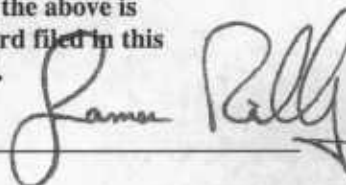 the above is
rd filed in this
James Reilly